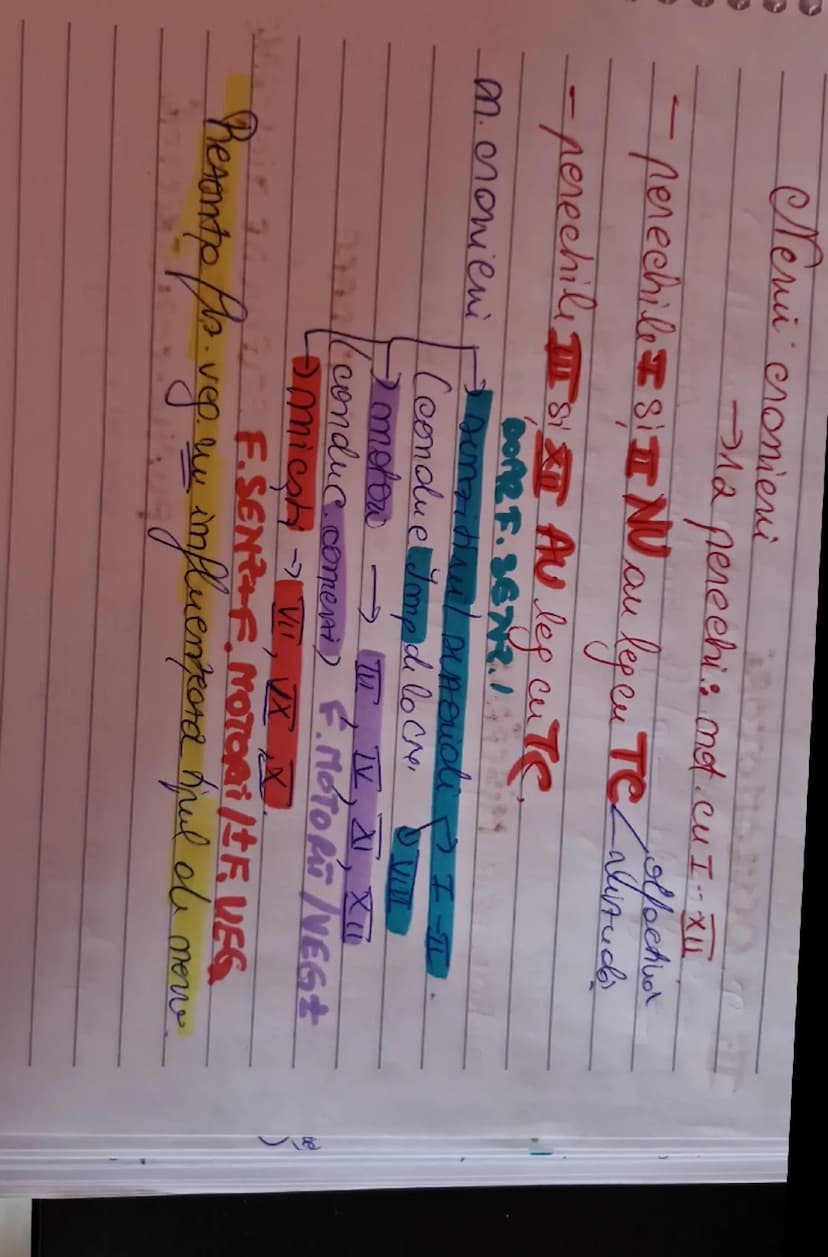 Nervii cranieni
→ 12 perechi: not. cu I - XII
- perechile I și II NU au leg cu TC olfactivă
vizuală
- perechile III și XII AU leg cu TC.
DOAR F. SENZ.!
n. cranieni → senzitivi / senzoriali → I - II
(conduc imp de la cm VIII
→ motori → III, IV, XI, XII
(conduc comenzi) F. MOTORII / VEG ±
→ micști → VII, IX, X
F. SENZ + F. MOTORI / ± F. VEG
Prezența fb. veg. nu influențează tipul de nerv.